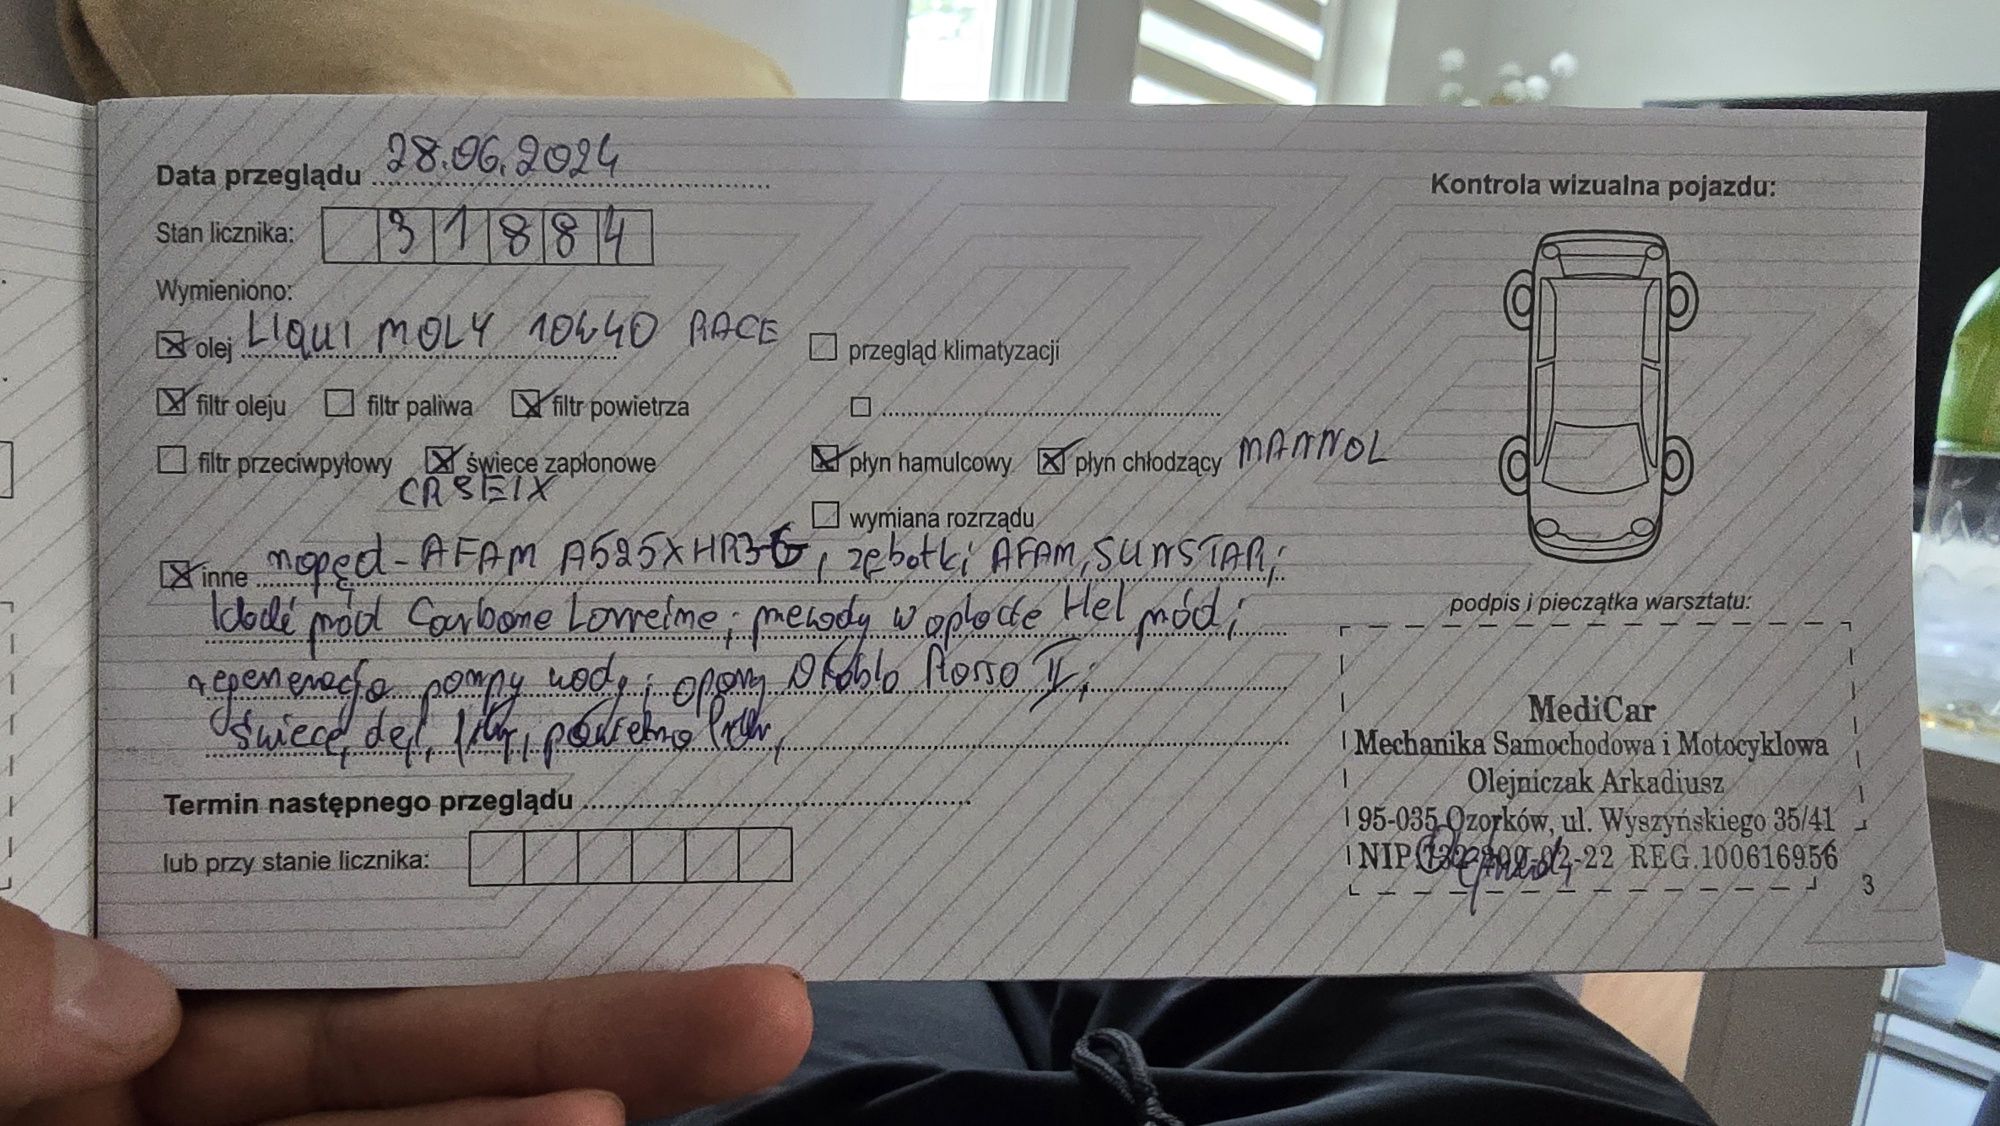 Data przeglądu 28.06.2024
Kontrola wizualna pojazdu:
Stan licznika: 31884
Wymieniono:
olej LIQUI MOLY 10W40 RACE
przegląd klimatyzacji
filtr oleju filtr paliwa filtr powietrza
filtr przeciwpyłowy świece zapłonowe
CR8EIX
płyn hamulcowy płyn chłodzący MANNOL
wymiana rozrządu
inne napęd - AFAM A525XHR3 , zębatki AFAM, SUNSTAR;
przód Carbone Lorreine; przewody w oplocie Hel przód;
regeneracja pompy wody; opony Diablo Rosso II;
świece, filtr, powietrza
podpis i pieczątka warsztatu:
MediCar
Mechanika Samochodowa i Motocyklowa
Olejniczak Arkadiusz
95-035 Ozorków, ul. Wyszyńskiego 35/41
NIP: -22 REG.100616956
Termin następnego przeglądu
lub przy stanie licznika:
3